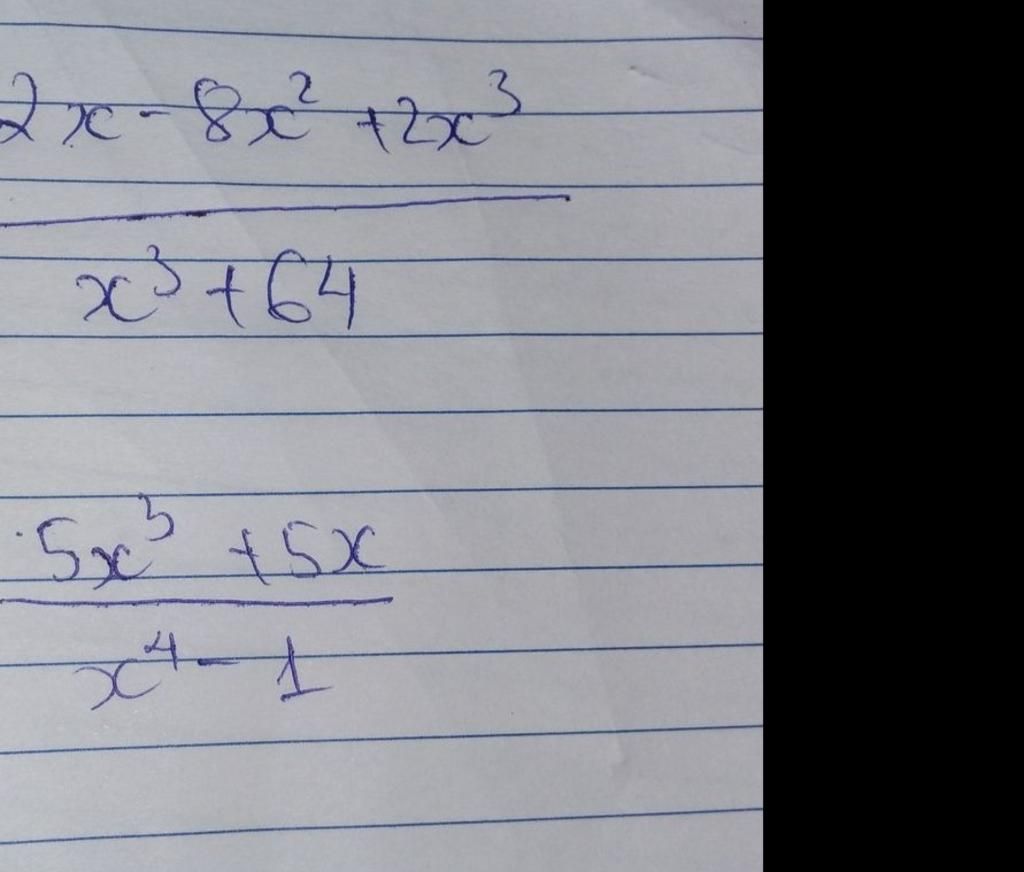 2x - 8x² + 2x³
x³ + 64
5x³ + 5x
x⁴ - 1